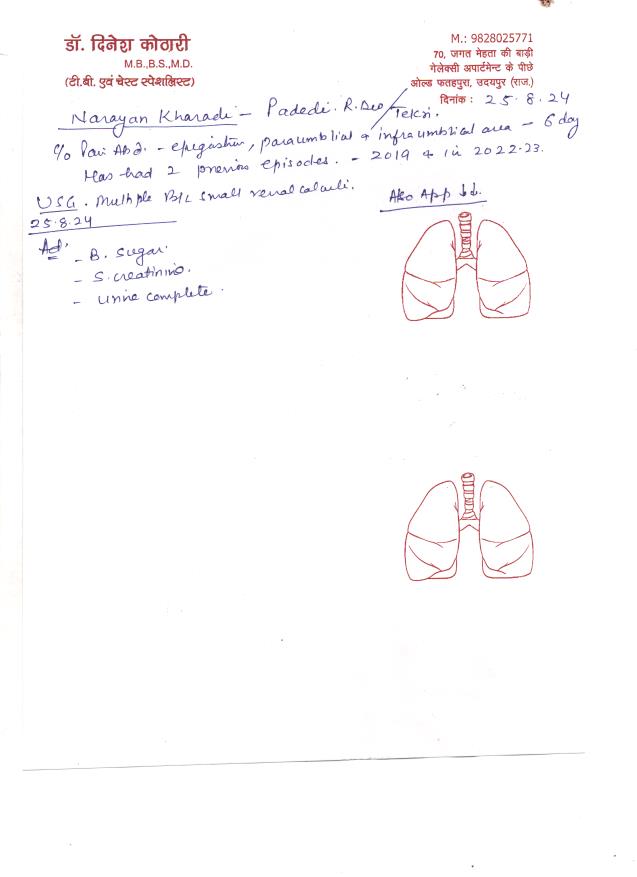 डॉ. दिनेश कोठारी
M.B.,B.S.,M.D.
(टी.बी. एवं चेस्ट स्पेशलिस्ट)
M.: 9828025771
70, जगत मेहता की बाड़ी
गेलेक्सी अपार्टमेन्ट के पीछे
ओल्ड फतहपुरा, उदयपुर (राज.)
दिनांक : 25.8.24
Narayan Kharadi - Padedi. R.Deo / Tekri.
c/o Pain Abd. - epigastrium, paraumblial & infraumblical area - 6 day
Has had 2 previous episodes. - 2019 & in 2022-23.
USG. Multiple B/L small renal calculi.
25.8.24
Also App ↓↓.
Ad.
- B. sugar.
- S. creatinine.
- Urine complete.